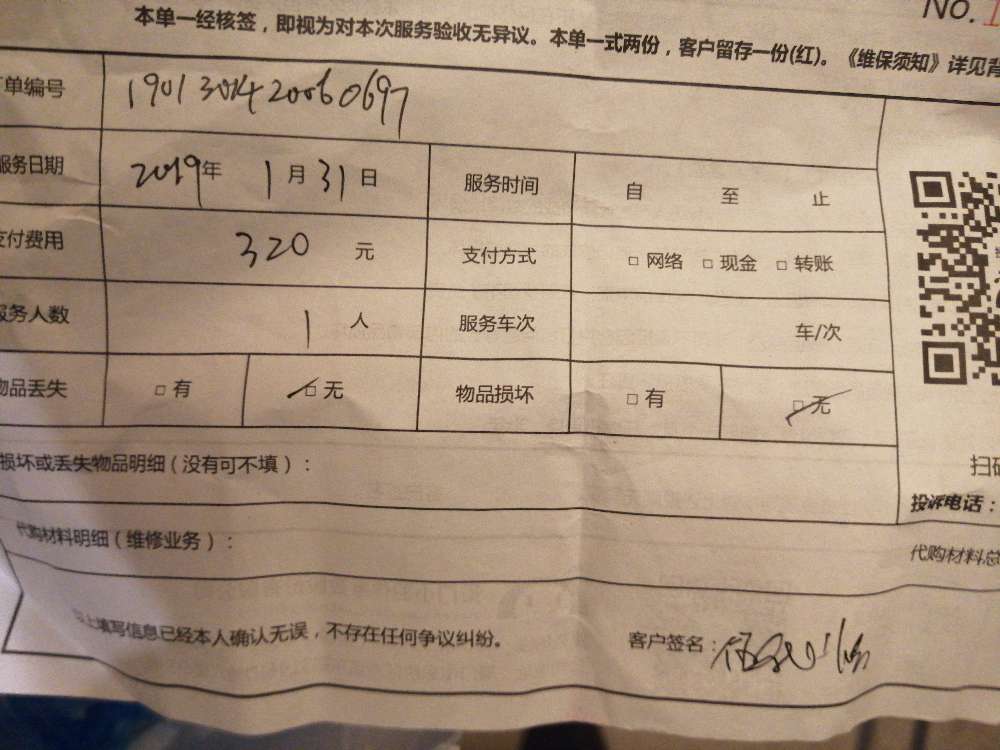 No. 1
本单一经核签，即视为对本次服务验收无异议。本单一式两份，客户留存一份(红)。《维保须知》详见背
单编号 1901301420060697
服务日期 2019年 1月 31日 服务时间 自 至 止
支付费用 320 元 支付方式 □ 网络 □ 现金 □ 转账
服务人数 1 人 服务车次 车/次
物品丢失 □ 有 □ 无 物品损坏 □ 有 □ 无
损坏或丢失物品明细（没有可不填）：
扫码
投诉电话：
代购材料明细（维修业务）：
代购材料总
以上填写信息已经本人确认无误，不存在任何争议纠纷。 客户签名：